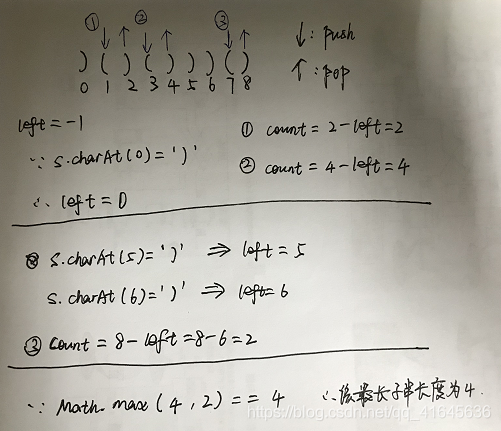 ① ② ③
) ( ) ( ) ) ) ( )
0 1 2 3 4 5 6 7 8
↓: push
↑: pop
left = -1
∵ s.charAt(0)=')'
∴ left = 0
① count = 2-left=2
② count = 4-left=4
s.charAt(5)=')' ⇒ left = 5
s.charAt(6)=')' ⇒ left= 6
③ count = 8-left=8-6=2
∵ Math.max(4,2) == 4 ∴ 最长子串长度为4.
https://blog.csdn.net/qq_41645636